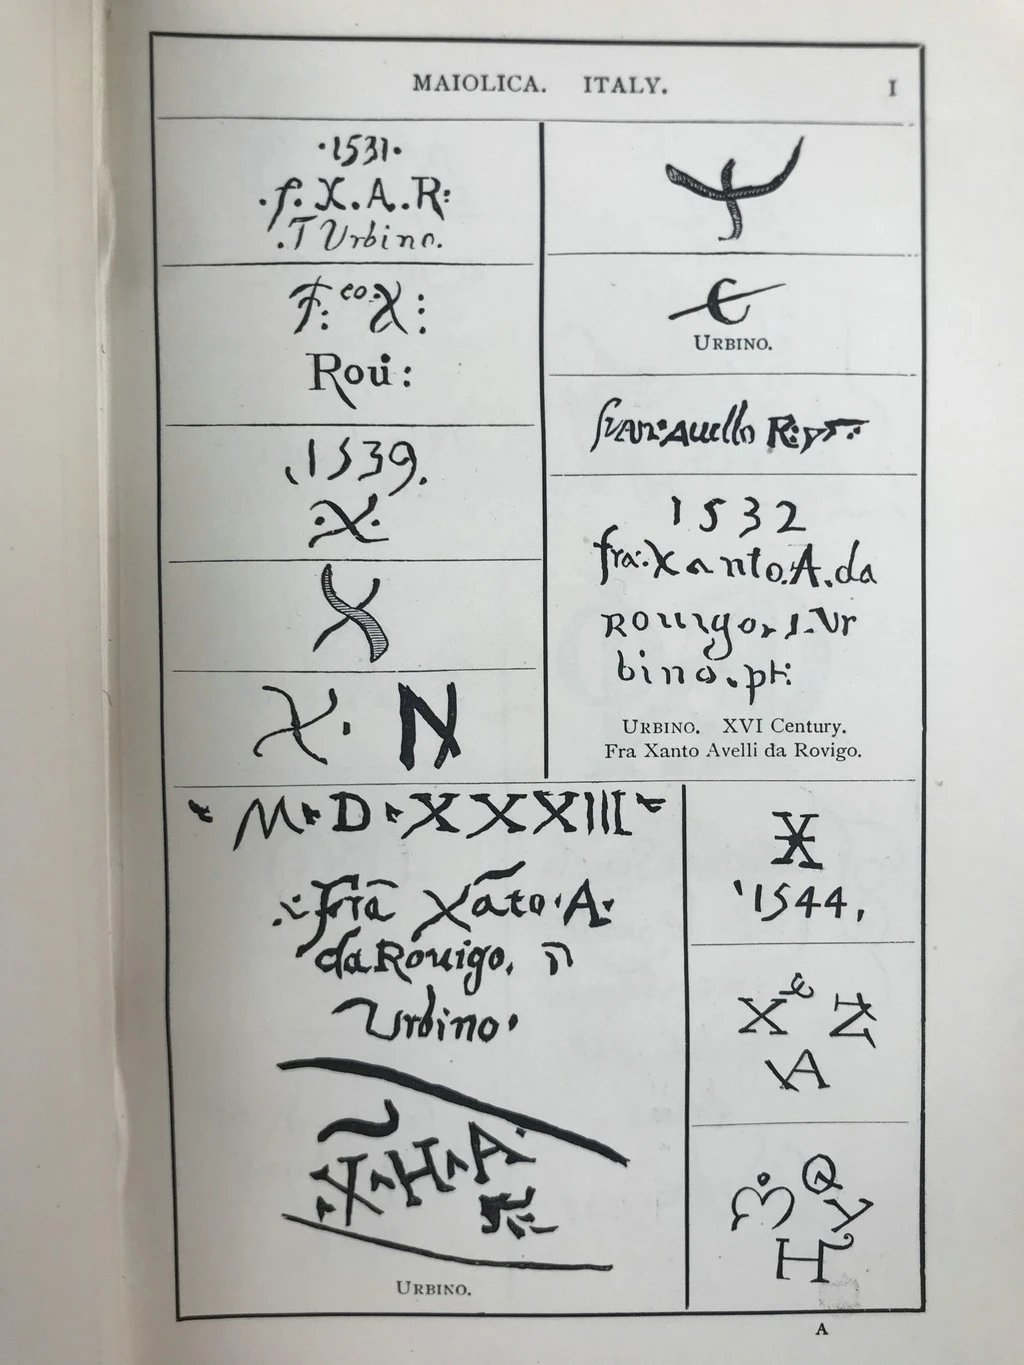 MAIOLICA. ITALY. I
·1531·
·f.X.A.R:
.T Urbino.
F:co.X:
Roui:
.1539.
·X·
X
X· N
URBINO.
1532
fra:Xanto.A.da
Rouigo, I.Ur
bino.pt:
URBINO. XVI Century.
Fra Xanto Avelli da Rovigo.
M·D·XXXIII
Frā Xāto·A·
da Rouigo,
Urbino·
X·H·A·
URBINO.
X
'1544,
X Z
A
Q
Y
H
A